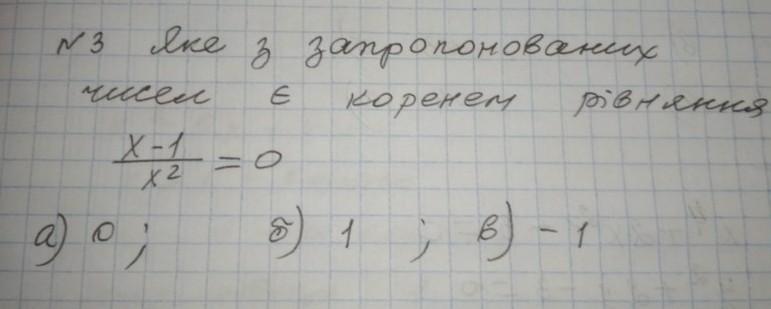 №3 Яке з запропонованих
чисел є коренем рівняння
x-1/x² = 0
а) 0; б) 1 ; в) -1